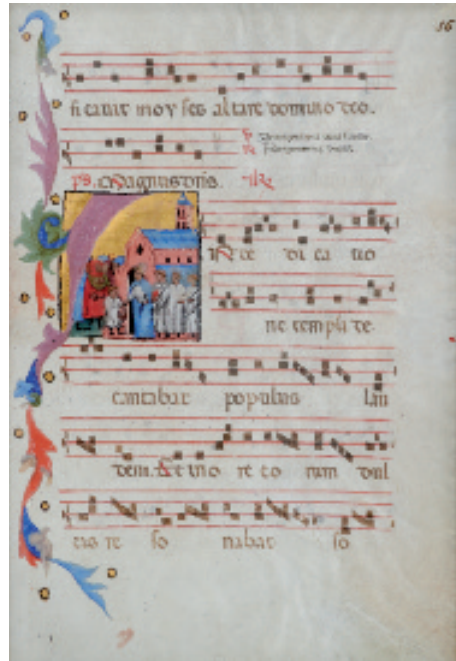 56
ficavit moyses altare domino deo.
ps. Magnus dns.
In de di ca tio
ne templi de
cantabat populus lau
dem. Et in o re eo rum dul
cis re so nabat so